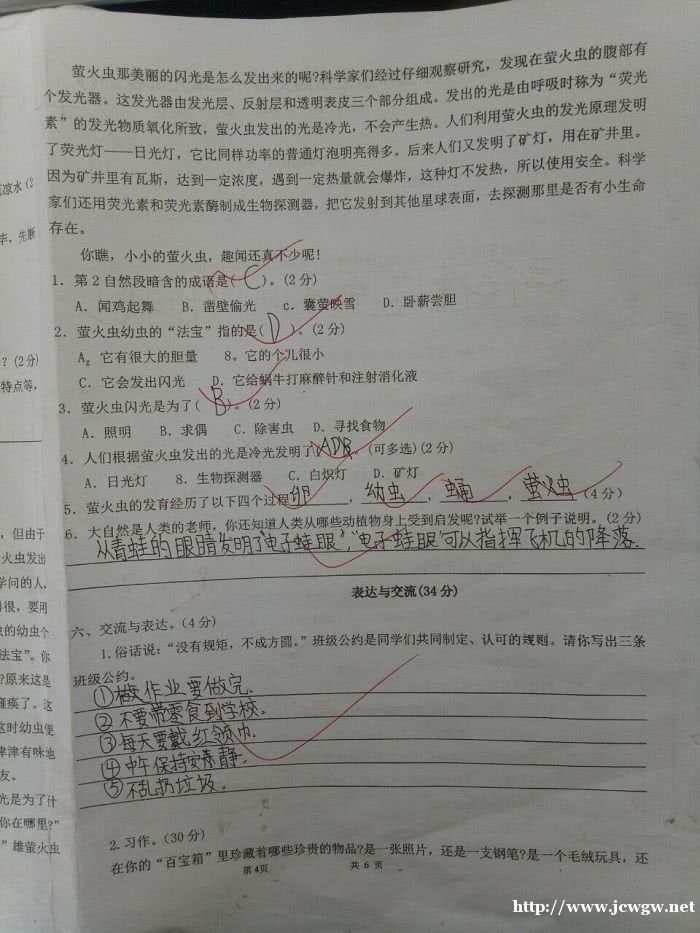 凉水(2
毕，先断
?(2分)
特点等，
但由于
火虫发出
学问的人，
得很，要用
虫的幼虫个
法宝”。你
?原来这是
瘫痪了。这
这时幼虫便
津津有味地
友。
光是为了什
你在哪里?”
”雄萤火虫
萤火虫那美丽的闪光是怎么发出来的呢?科学家们经过仔细观察研究，发现在萤火虫的腹部有
个发光器。这发光器由发光层、反射层和透明表皮三个部分组成。发出的光是由呼吸时称为“荧光
素”的发光物质氧化所致，萤火虫发出的光是冷光，不会产生热。人们利用萤火虫的发光原理发明
了荧光灯——日光灯，它比同样功率的普通灯泡明亮得多。后来人们又发明了矿灯，用在矿井里。
因为矿井里有瓦斯，达到一定浓度，遇到一定热量就会爆炸，这种灯不发热，所以使用安全。科学
家们还用荧光素和荧光素酶制成生物探测器，把它发射到其他星球表面，去探测那里是否有小生命
存在。
你瞧，小小的萤火虫，趣闻还真不少呢!
1．第2自然段暗含的成语是( C )。(2分)
A．闻鸡起舞 B．凿壁偷光 c．囊萤映雪 D．卧薪尝胆
2．萤火虫幼虫的“法宝”指的是( D )。(2分)
A。它有很大的胆量 8。它的个儿很小
C．它会发出闪光 D．它给蜗牛打麻醉针和注射消化液
3．萤火虫闪光是为了( B )。(2分)
A．照明 B．求偶 C．除害虫 D．寻找食物
4．人们根据萤火虫发出的光是冷光发明了(ADB)。(可多选)(2分)
A．日光灯 8．生物探测器 C．白炽灯 D．矿灯
5．萤火虫的发育经历了以下四个过程卵，幼虫，蛹，萤火虫(4分)
6．大自然是人类的老师，你还知道人类从哪些动植物身上受到启发呢?试举一个例子说明。(2分)
从青蛙的眼睛发明了“电子蛙眼”，“电子蛙眼”可以指挥飞机的降落.
表达与交流(34分)
六、交流与表达。(4分)
1.俗话说：“没有规矩，不成方圆。”班级公约是同学们共同制定、认可的规则。请你写出三条
班级公约。
①做作业要做完.
②不要带零食到学校.
③每天要戴红领巾.
④中午保持安静.
⑤不乱扔垃圾.
2.习作。(30分)
在你的“百宝箱”里珍藏着哪些珍贵的物品?是一张照片，还是一支钢笔?是一个毛绒玩具，还
第4页 共6页
http://www.jcwgw.net